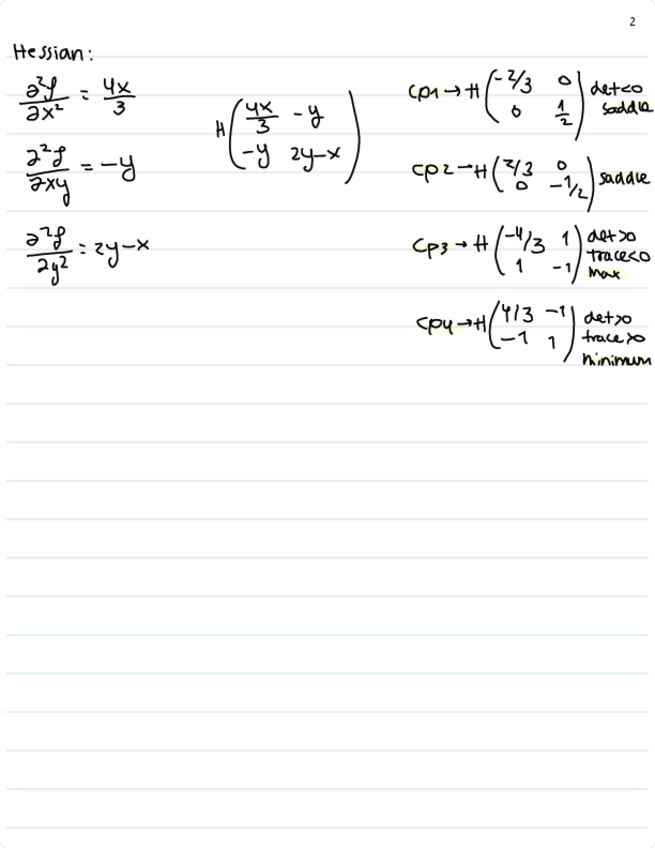 2
Hessian:
∂²f/∂x² = 4x/3
∂²f/∂xy = -y
∂²f/∂y² = 2y-x
H (4x/3 -y
-y 2y-x)
CP1 → H (-2/3 0
0 1/2) det<0
saddle
CP2 → H (2/3 0
0 -1/2) saddle
CP3 → H (-4/3 1
1 -1) det>0
trace<0
Max
CP4 → H (4/3 -1
-1 1) det>0
trace>0
minimum